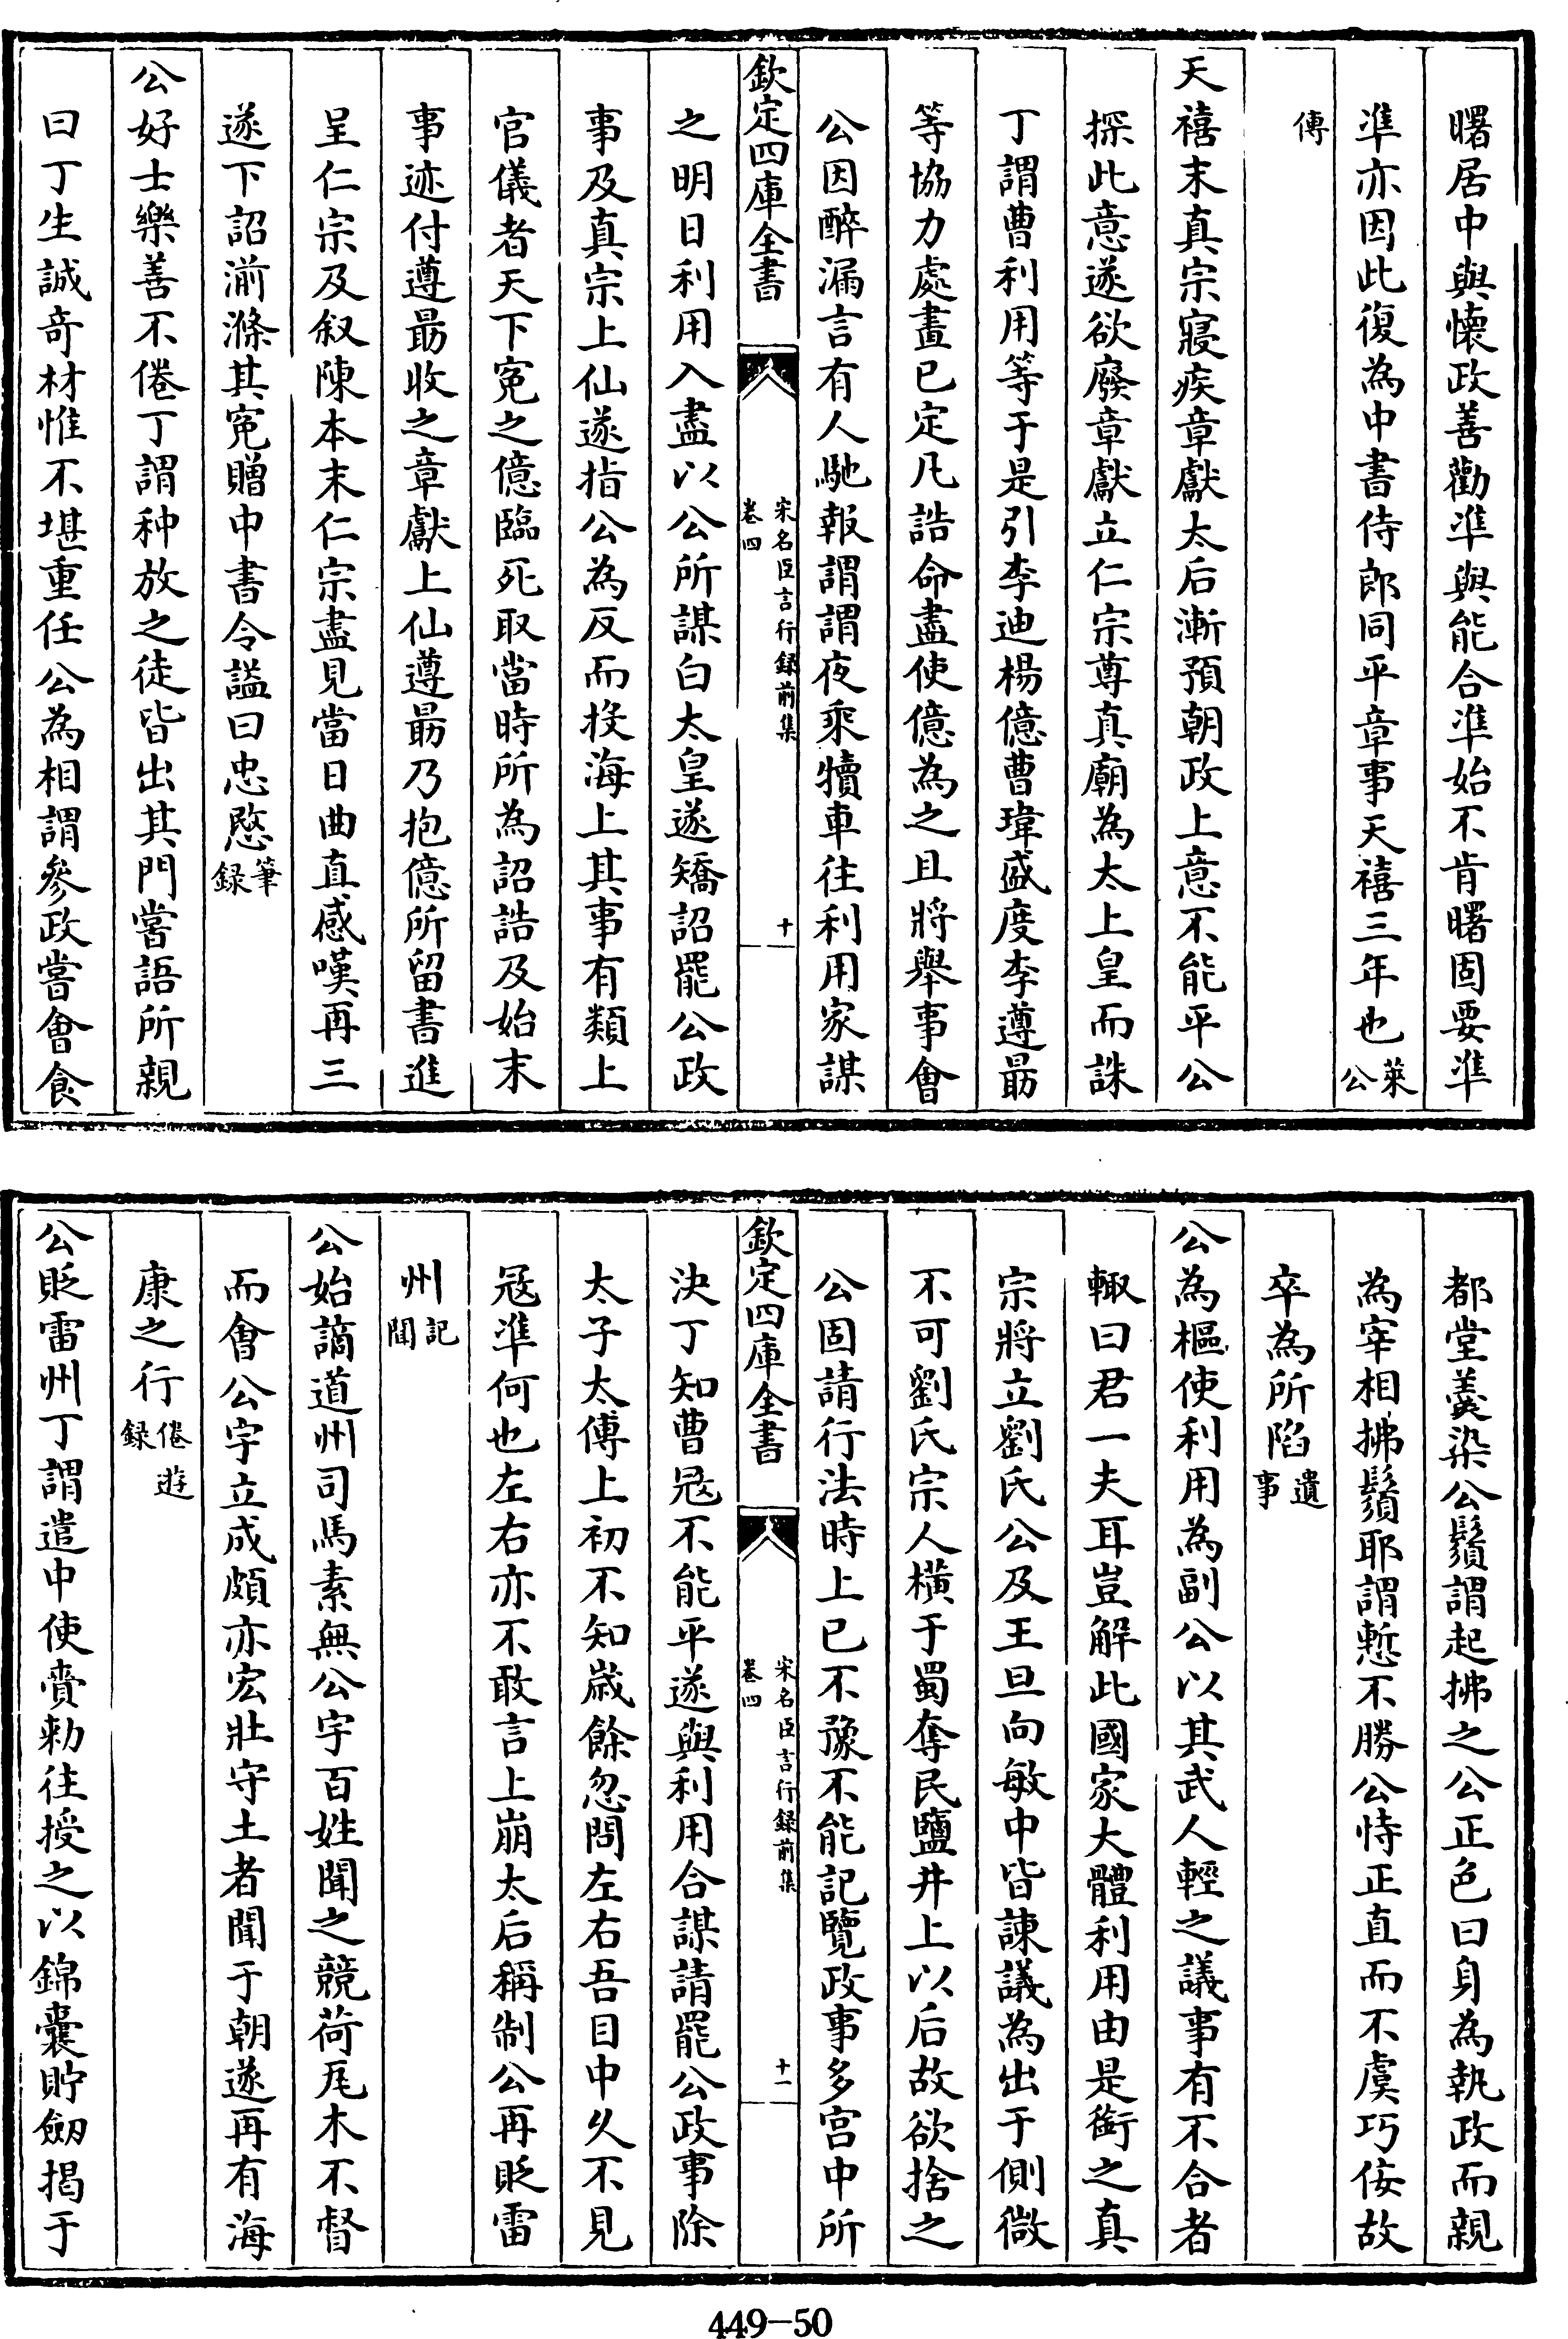 曙居中與懐政善勸準與能合準始不肯曙固要準
準亦因此復為中書侍郎同平章事天禧三年也萊公
傳
天禧末真宗寢疾章獻太后漸預朝政上意不能平公
探此意遂欲廢章獻立仁宗尊真廟為太上皇而誅
丁謂曹利用等于是引李迪楊億曹瑋盛度李遵朂
等協力處畫已定凡誥命盡使億為之且將舉事會
公因醉漏言有人馳報謂謂夜乘犢車往利用家謀
欽定四庫全書
宋名臣言行録前集
卷四
十
之明日利用入盡以公所謀白太皇遂矯詔罷公政
事及真宗上仙遂指公為反而投海上其事有類上
官儀者天下寃之億臨死取當時所為詔誥及始末
事迹付遵朂收之章獻上仙遵朂乃抱億所留書進
呈仁宗及叙陳本末仁宗盡見當日曲直感嘆再三
遂下詔湔滌其寃贈中書令諡曰忠愍筆録
公好士樂善不倦丁謂种放之徒皆出其門嘗語所親
曰丁生誠竒材惟不堪重任公為相謂參政嘗會食
都堂羮染公鬚謂起拂之公正色曰身為執政而親
為宰相拂鬚耶謂慙不勝公恃正直而不虞巧佞故
卒為所陷遺事
公為樞使利用為副公以其武人輕之議事有不合者
輙曰君一夫耳豈解此國家大體利用由是銜之真
宗將立劉氏公及王旦向敏中皆諫議為出于側微
不可劉氏宗人橫于蜀奪民鹽井上以后故欲捨之
公固請行法時上已不豫不能記覽政事多宫中所
欽定四庫全書
宋名臣言行録前集
卷四
十一
決丁知曹冦不能平遂與利用合謀請罷公政事除
太子太傅上初不知歳餘忽問左右吾目中久不見
冦準何也左右亦不敢言上崩太后稱制公再貶雷
州記聞
公始謫道州司馬素無公宇百姓聞之競荷瓦木不督
而會公宇立成頗亦宏壯守土者聞于朝遂再有海
康之行倦遊録
公貶雷州丁謂遣中使賫勅往授之以錦囊貯劔揭于
449-50